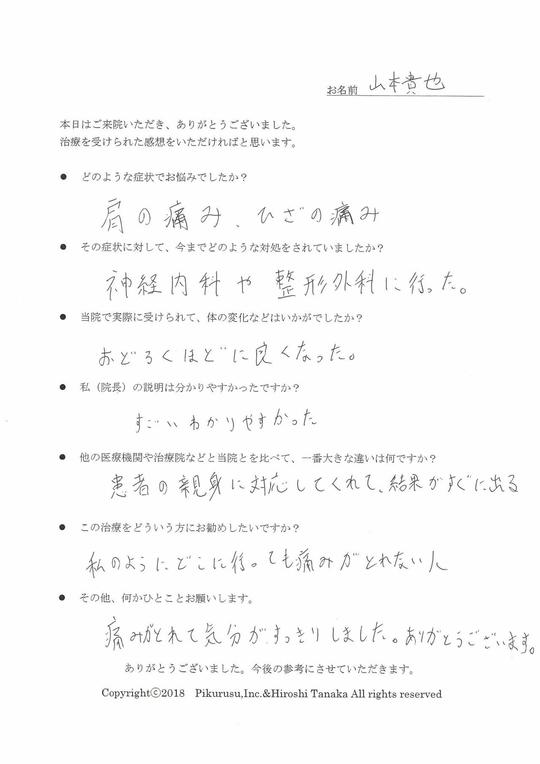 お名前 山本貴也
本日はご来院いただき、ありがとうございました。
治療を受けられた感想をいただければと思います。
● どのような症状でお悩みでしたか？
肩の痛み、ひざの痛み
● その症状に対して、今までどのような対処をされていましたか？
神経内科や整形外科に行った。
● 当院で実際に受けられて、体の変化などはいかがでしたか？
おどろくほどに良くなった。
● 私（院長）の説明は分かりやすかったですか？
すごいわかりやすかった
● 他の医療機関や治療院などと当院とを比べて、一番大きな違いは何ですか？
患者の親身に対応してくれて、結果がすぐに出る
● この治療をどういう方にお勧めしたいですか？
私のようにどこに行っても痛みがとれない人
● その他、何かひとことお願いします。
痛みがとれて気分がすっきりしました。ありがとうございます。
ありがとうございました。今後の参考にさせていただきます。
Copyrightⓒ2018 Pikurusu,Inc.&Hiroshi Tanaka All rights reserved